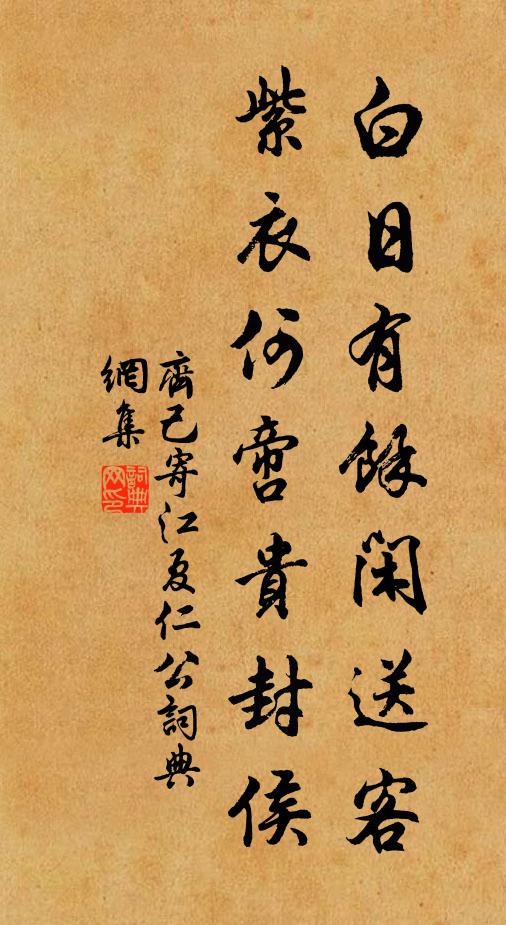 白日有餘閑送客
紫衣何啻貴封侯
齊己寄江夏仁公詞典
網集
詞典
网印